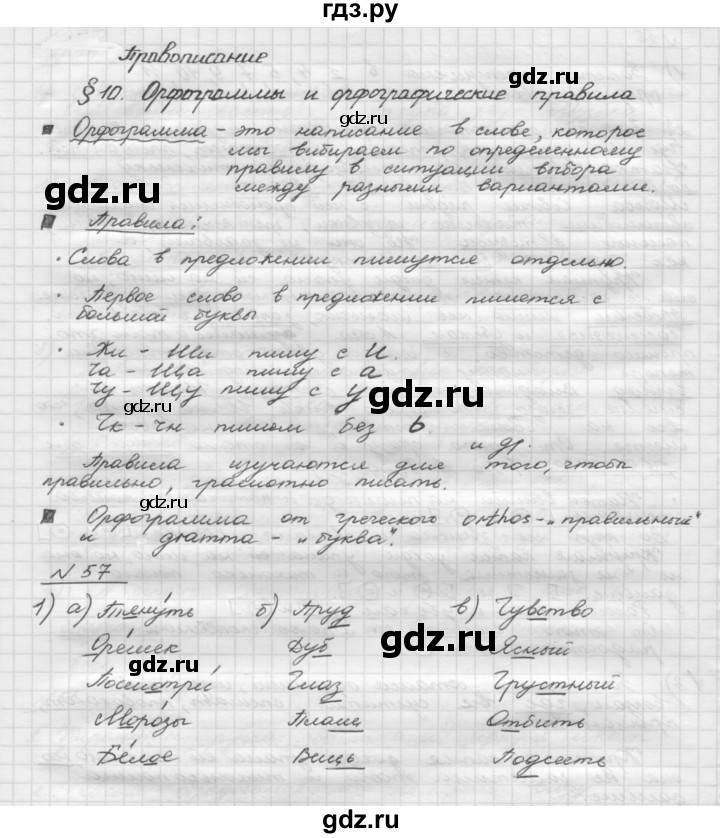 гдз.ру
Правописание
§ 10. Орфограммы и орфографические правила
Орфограмма - это написание в слове, которое
мы выбираем по определенному
правилу в ситуации выбора
между разными вариантами.
гдз.ру
гдз.ру
Правила:
• Слова в предложении пишутся отдельно.
• Первое слово в предложении пишется с
большой буквы
• Жи - Ши пишу с И.
Ча - Ща пишу с а
Чу - Щу пишу с у
гдз.ру
гдз.ру
• Чк - чн пишем без Ь.
и др.
Правила изучаются для того, чтобы
правильно, грамотно писать.
гдз.ру
Орфограмма от греческого orthos - "правильный"
и gramma - "буква".
N 57
1) а) Тянуть б) Пруд в) Чувство
Оре́шек Дуб Ясный
гдз.ру
Посмотри́ Глаз Грустный
гдз.ру
Моро́зы Плащ Отбить
Бе́лое Вещь Подсесть
гдз.ру